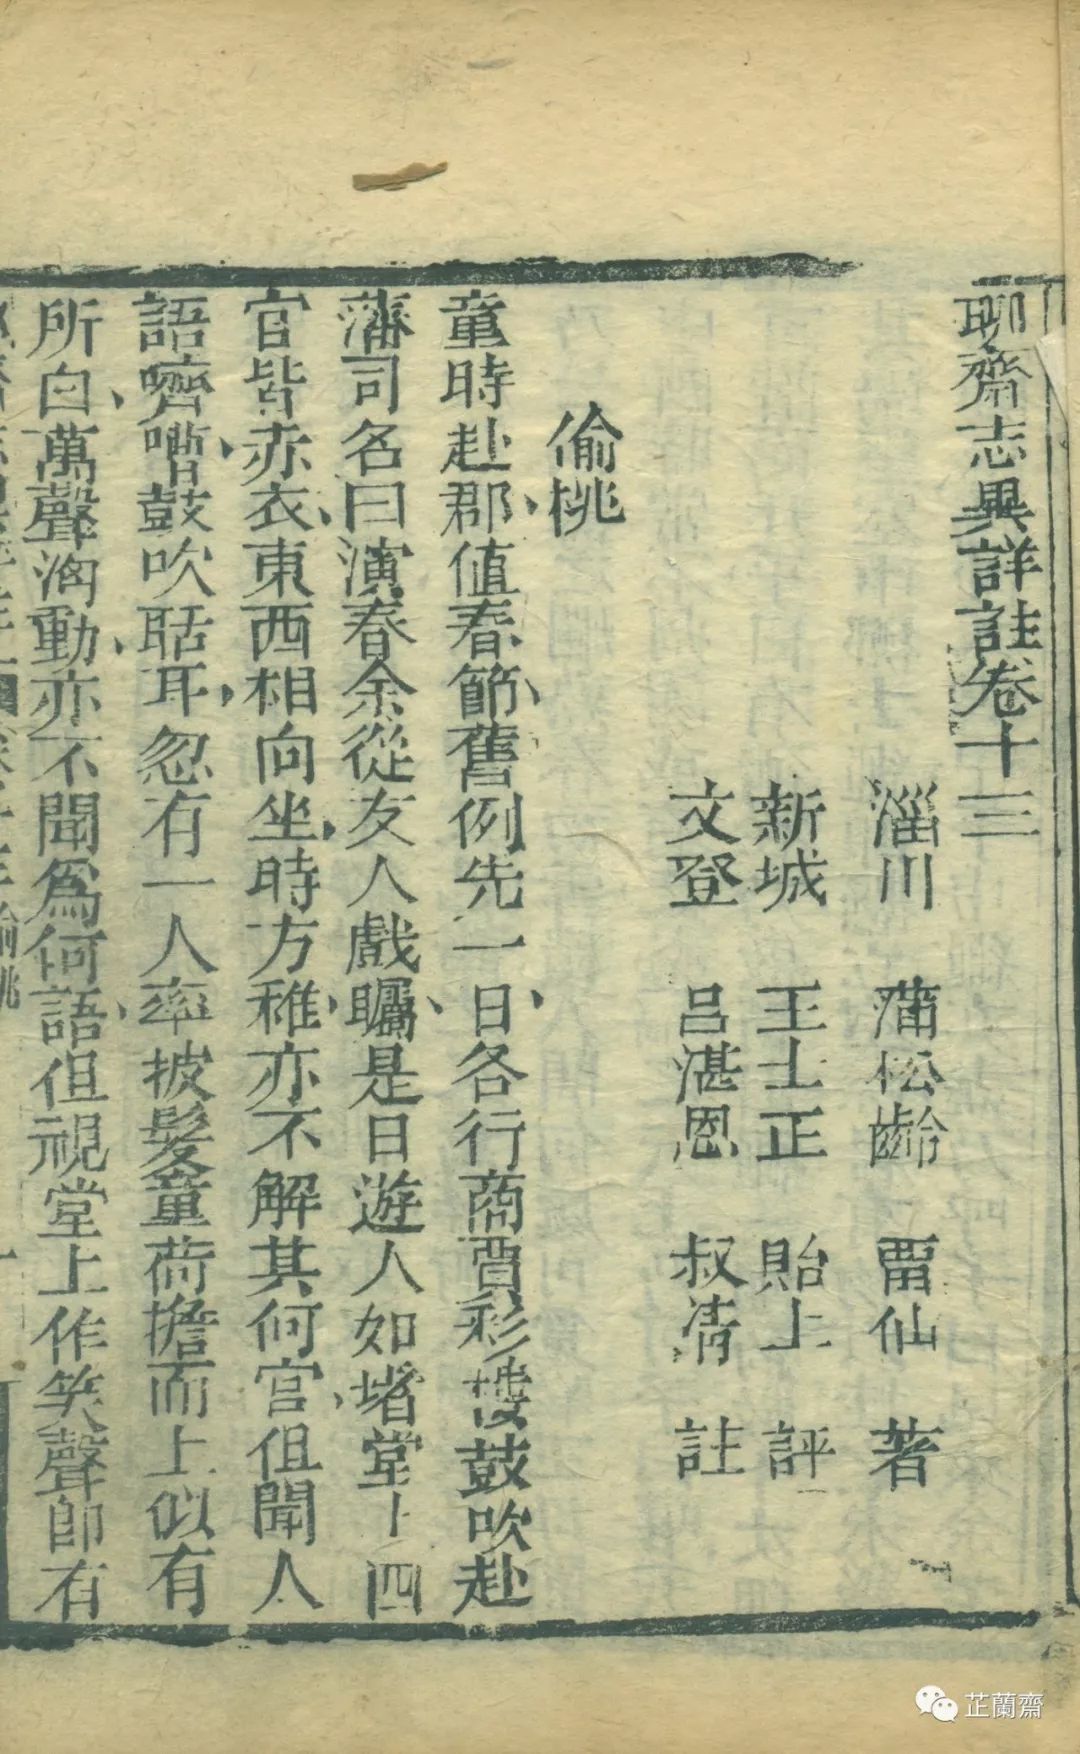 聊齋志異詳註卷十三
淄川 蒲松齡 畱仙 著
新城 王士正 貽上 評
文登 呂湛恩 叔清 註
偷桃
童時赴郡、值春節、舊例先一日、各行商賈彩樓鼓吹赴
藩司名曰演春余從友人戲矚、是日遊人如堵堂上四
官皆赤衣、東西相向坐、時方稚、亦不解其何官、但聞人
語嚌嘈、鼓吹聒耳、忽有一人率披髮童荷擔而上似有
所白、萬聲洶動、亦不聞爲何語、但視堂上作笑聲卽有
偷桃
芷蘭齋